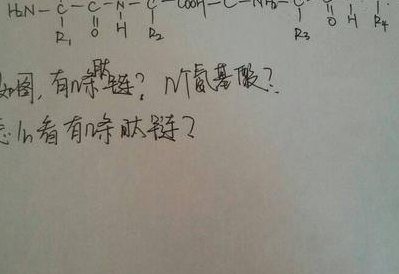 H₂N-C-C-N-C-COOH-C-NH₂-C
R₁ O H R₂ R₃ O H R₄
如图,有n条肽链?n个氨基酸?
怎么看有n条肽链?